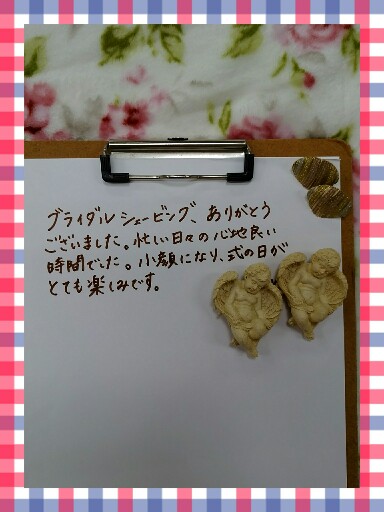 ブライダルシェービング、ありがとう
ございました。忙しい日々の心地良い
時間でした。小顔になり、式の日が
とても楽しみです。